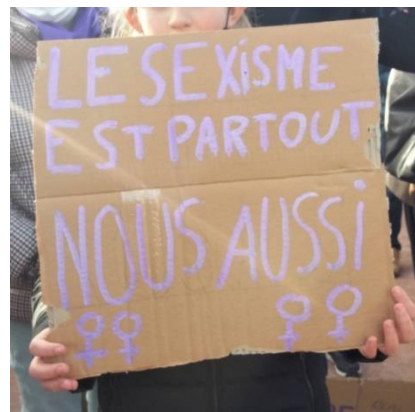 LE SEXiSME
EST PARTOUT
NOUS AUSSi
♀♀ ♀♀